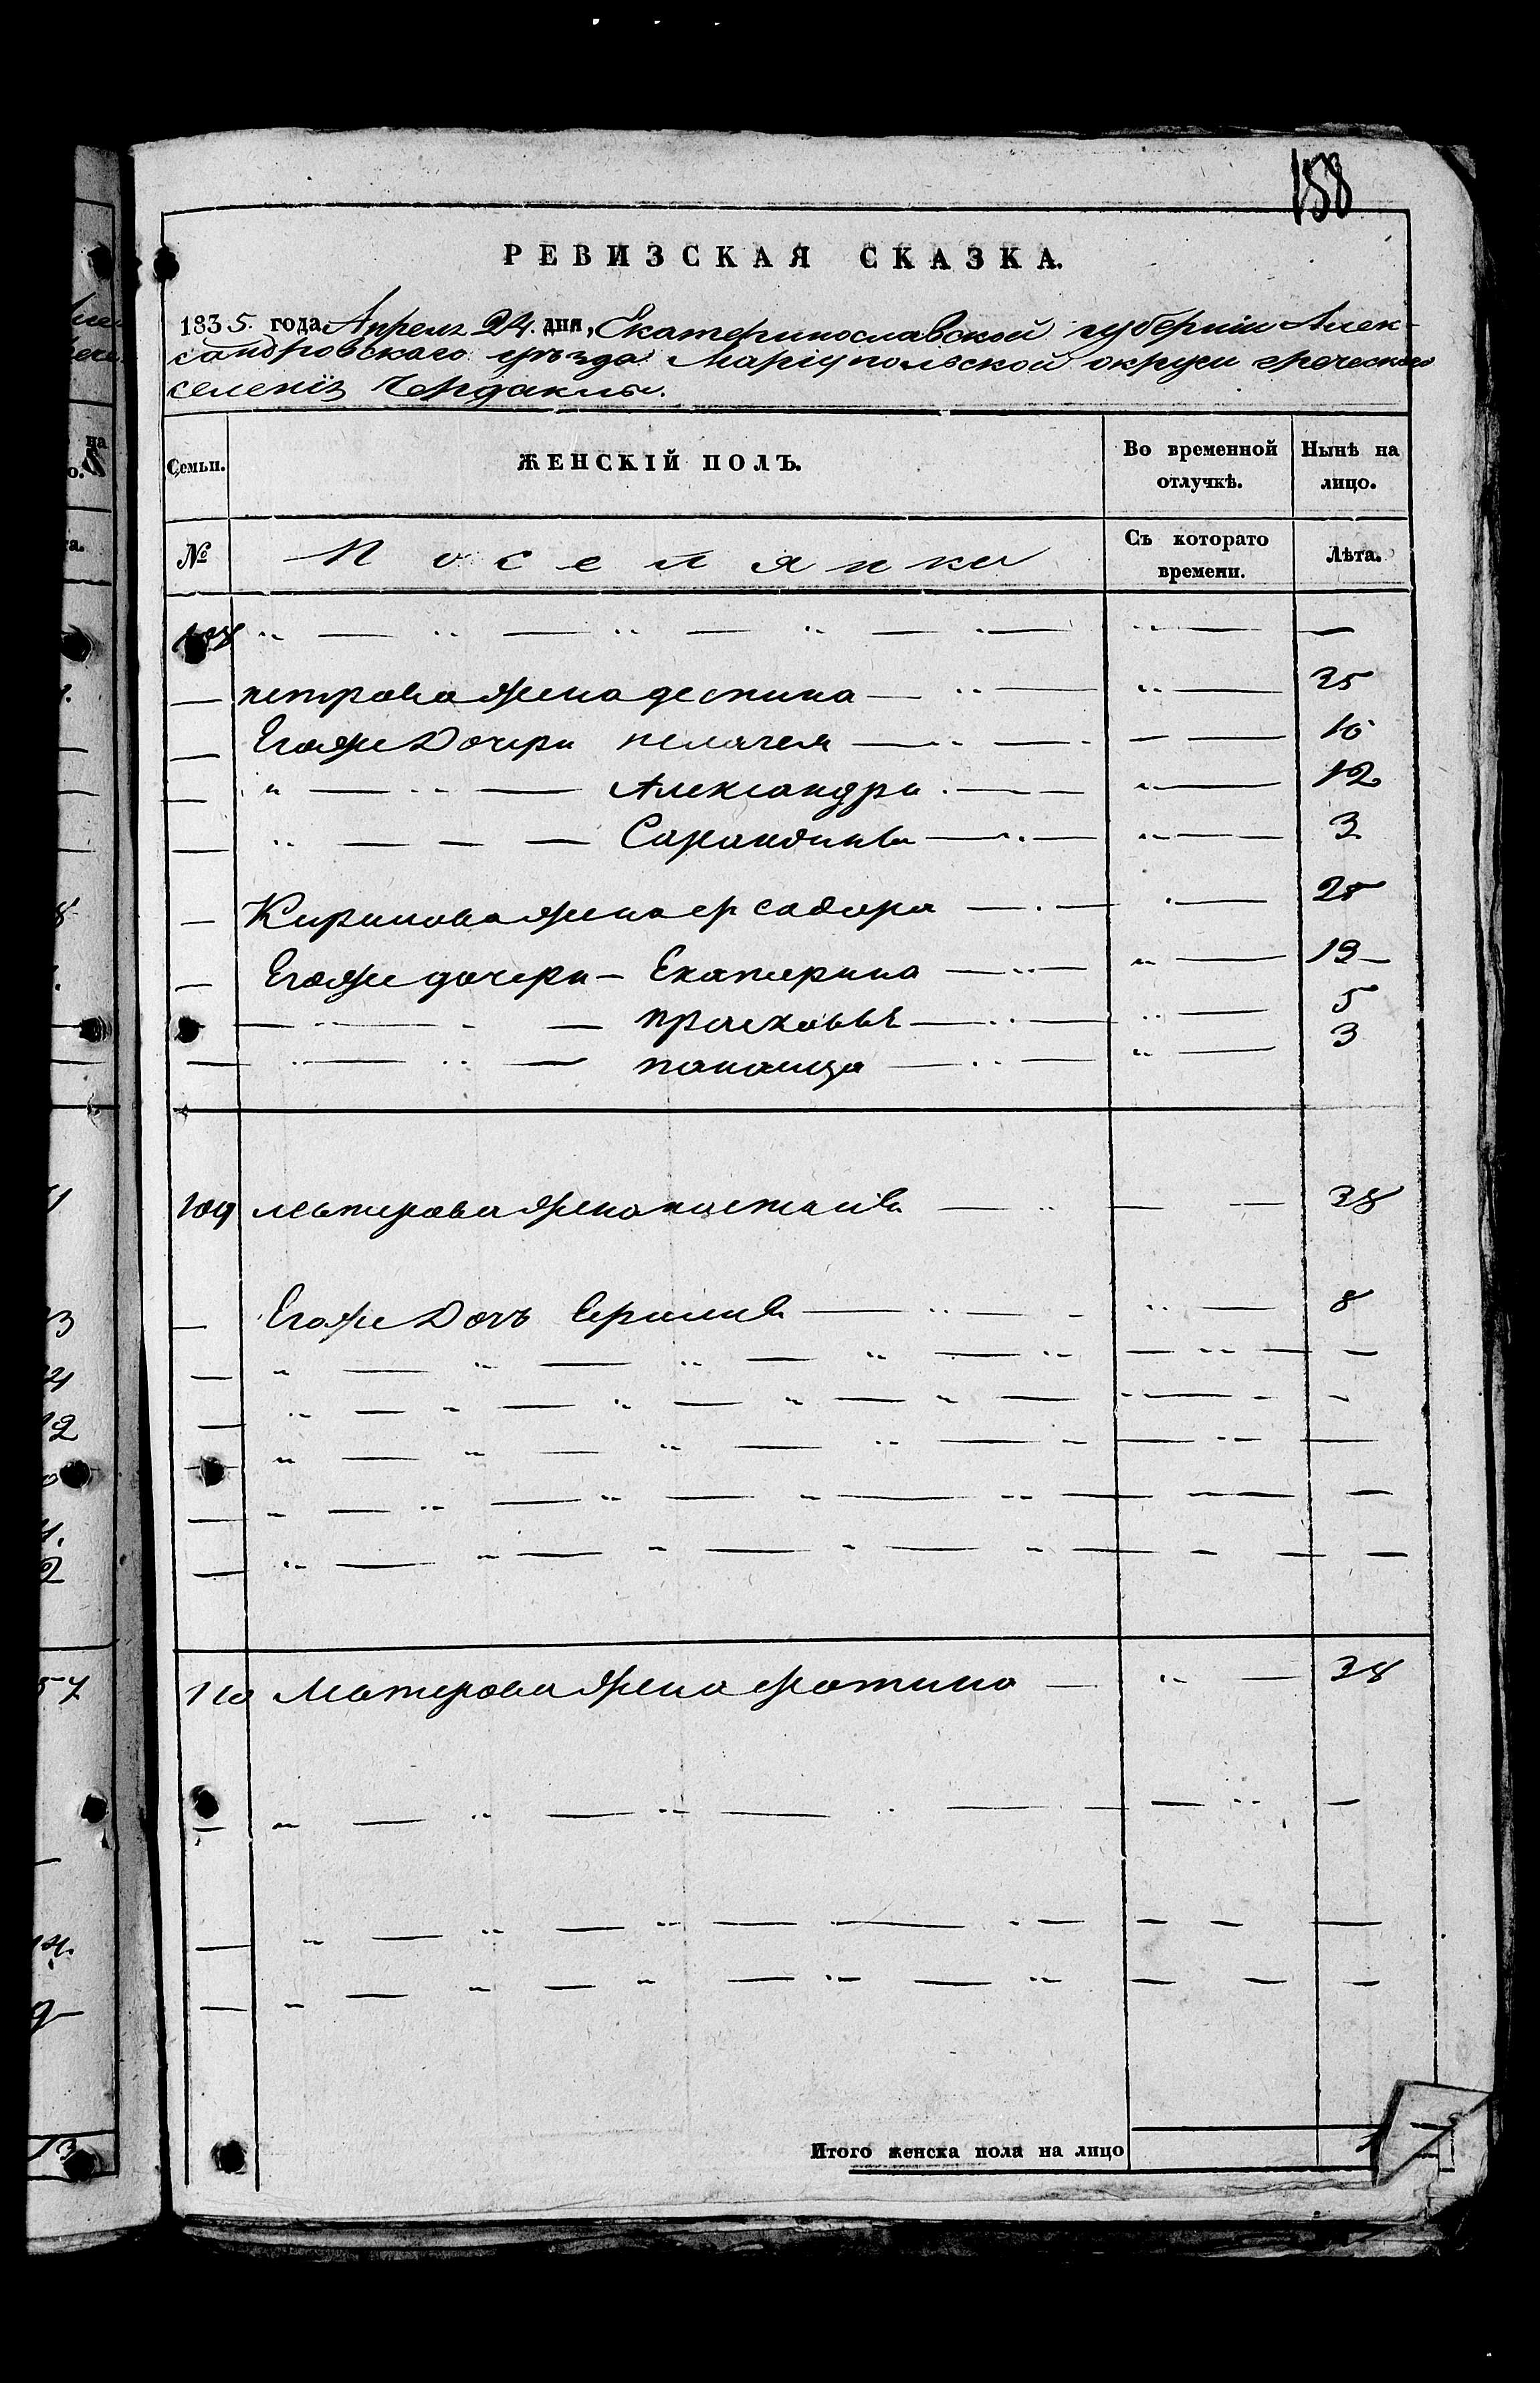 158
РЕВИЗСКАЯ СКАЗКА.
1835. года Апреля 24. дня, Екатеринославской губернїи Алек-
сандровскаго уѣзда Марїупольской округи греческаго
селенїя Чердаклы.
Семьи. ЖЕНСКІЙ ПОЛЪ. Во временной отлучкѣ. Нынѣ на лицо.
№ Поселянки Съ которато времени. Лѣта.
108
петрова жена деспина 35
Егоже Дочери пелагея 16
Александра 12
Сарандина 3
Кирикова жена 25
Егоже дочери Екатерина 13
прасковья 5
3
109 жена 38
Егоже Дочь 8
110 жена фотина 38
Итого женска пола на лицо